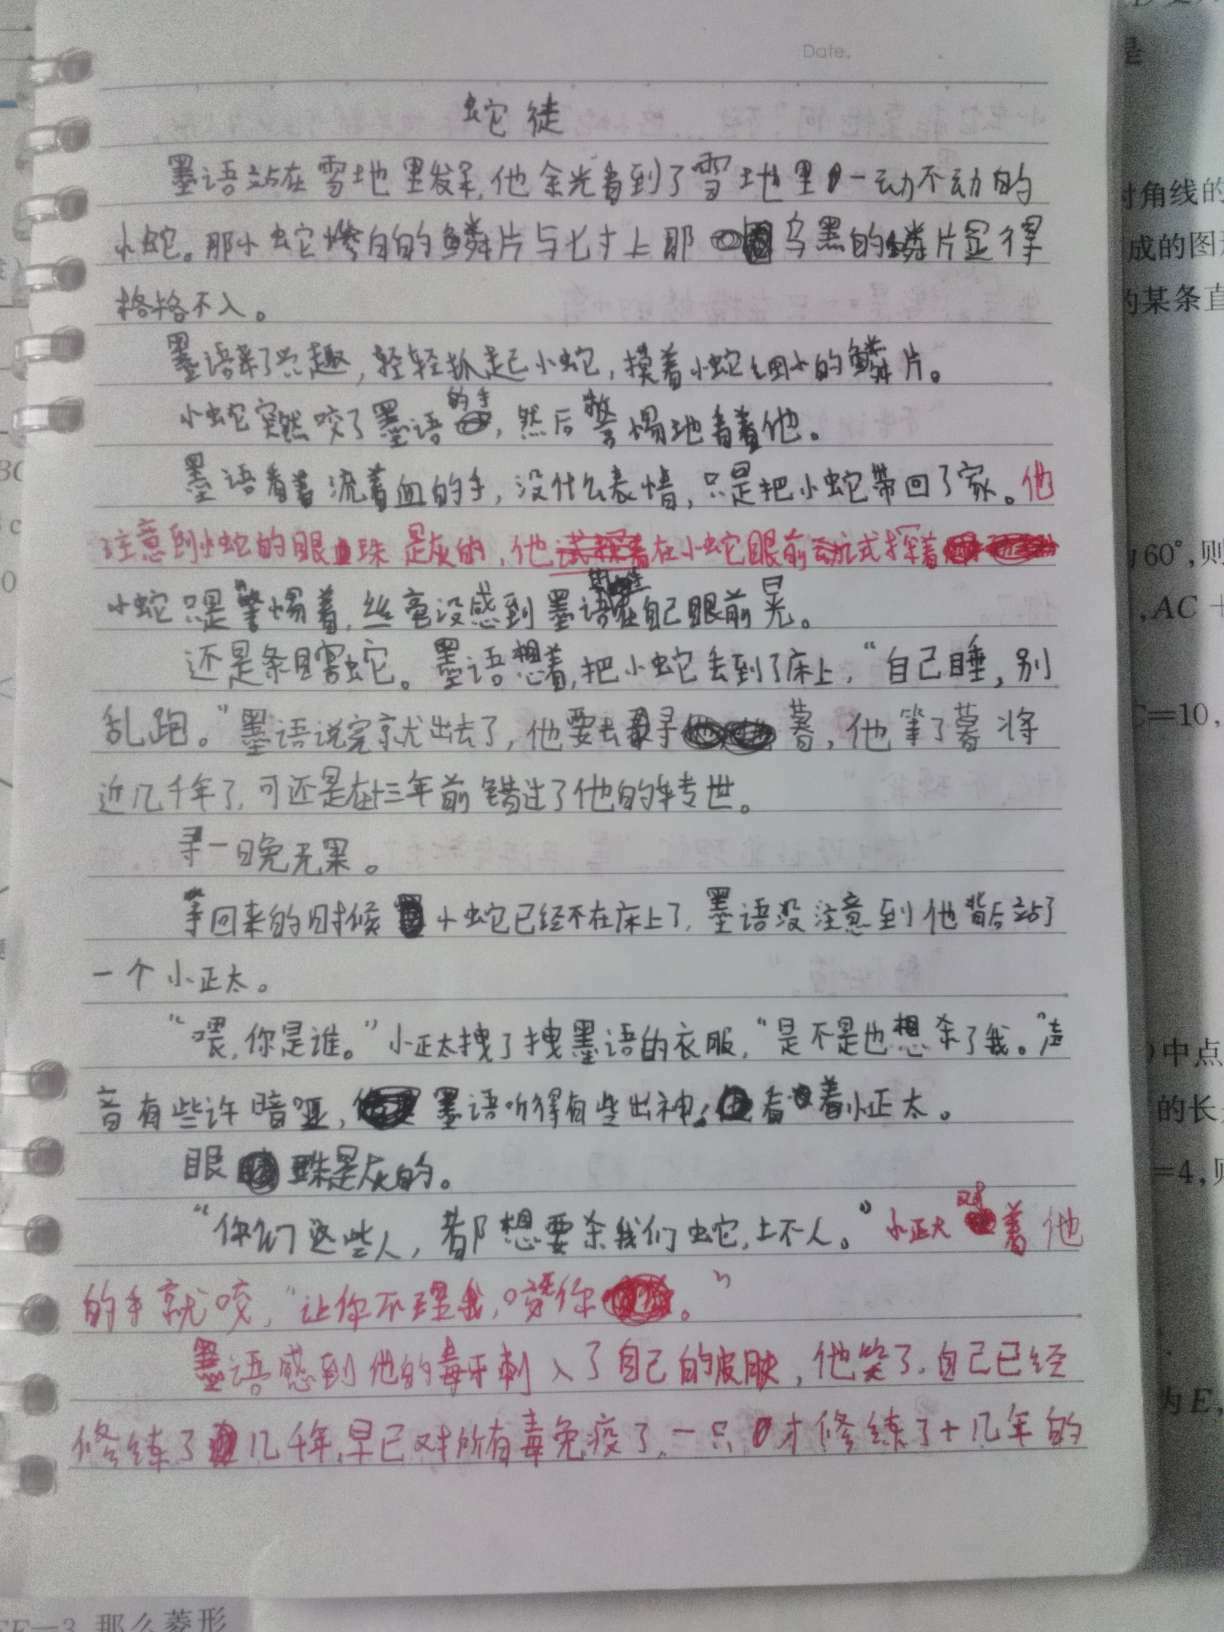 Date.
蛇徒
墨语站在雪地里发呆,他余光看到了雪地里一动不动的
小蛇。那小蛇惨白的鳞片与七寸上那乌黑的鳞片显得
格格不入。
墨语来了兴趣,轻轻抓起小蛇,摸着小蛇细小的鳞片。
小蛇突然咬了墨语的手,然后警惕地看着他。
墨语看着流着血的手,没什么表情,只是把小蛇带回了家。他
注意到小蛇的眼珠是灰的,他在小蛇眼前式探着
小蛇只是警惕着,丝毫没感到墨语在自己眼前晃。
还是条瞎蛇。墨语想着,把小蛇丢到了床上,“自己睡,别
乱跑。”墨语说完就出去了,他要去寻暮,他等了暮将
近几千年了,可还是在十三年前错过了他的转世。
寻一晚无果。
等回来的时候小蛇已经不在床上了,墨语没注意到他背后站了
一个小正太。
“喂,你是谁。”小正太拽了拽墨语的衣服,“是不是也想杀了我。”声
音有些许暗哑,墨语听得有些出神,看着小正太。
眼珠是灰的。
“你们这些人,都想要杀我们蛇,上不人。”小正太对着他
的手就咬,“让你不理我,咬你。”
墨语感到他的毒牙刺入了自己的皮肤,他笑了,自己已经
修练了几千年,早已对所有毒免疫了,一只才修练了十几年的
是
对角线的
成的图形
的某条直
60°,则
,AC+
C=10,
中点
的长
=4,则
为E,
EF=3,那么菱形